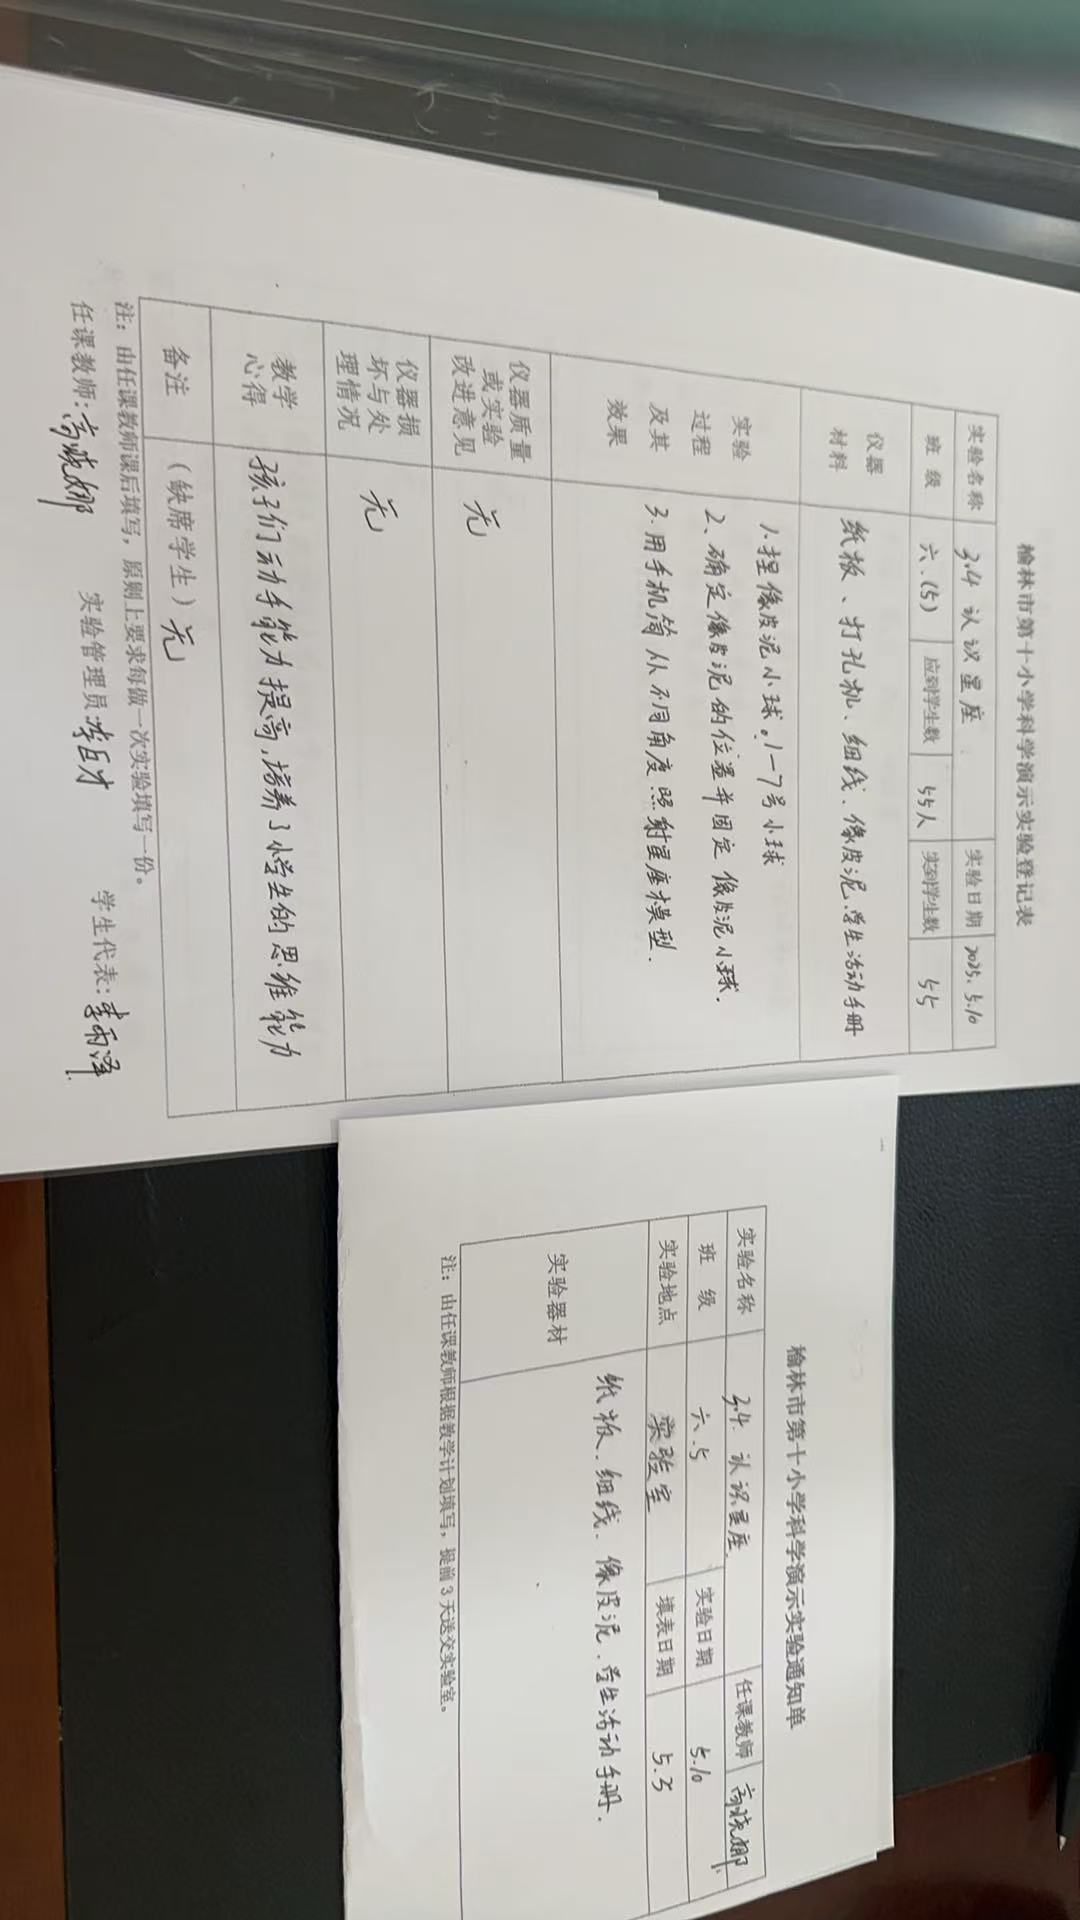 榆林市第十小学科学演示实验登记表
实验名称 3.4 认识星座 实验日期 2025.5.10
班 级 六.(5) 应到学生数 55人 实到学生数 55
仪器
材料
纸板、打孔机、细线、像皮泥.学生活动手册
实验
过程
及其
效果
1.捏像皮泥小球。1-7号小球
2、确定像皮泥的位置并固定像皮泥小球.
3.用手机筒从不同角度照射星座模型.
仪器质量
或实验
改进意见
无
仪器损
坏与处
理情况
无
教学
心得
孩子们动手能力提高,培养了小学生的思维能力
备注 (缺席学生) 无
注：由任课教师课后填写，原则上要求每做一次实验填写一份。
任课教师: 高晓娜 实验管理员 学生代表: 李雨泽
榆林市第十小学科学演示实验通知单
实验名称 3.4 认识星座. 任课教师 高晓娜
班 级 六.5 实验日期 5.10
实验地点 实验室 填表日期 5.3
实验器材 纸板.细线.像皮泥.学生活动手册.
注：由任课教师根据教学计划填写，提前3天送交实验室。